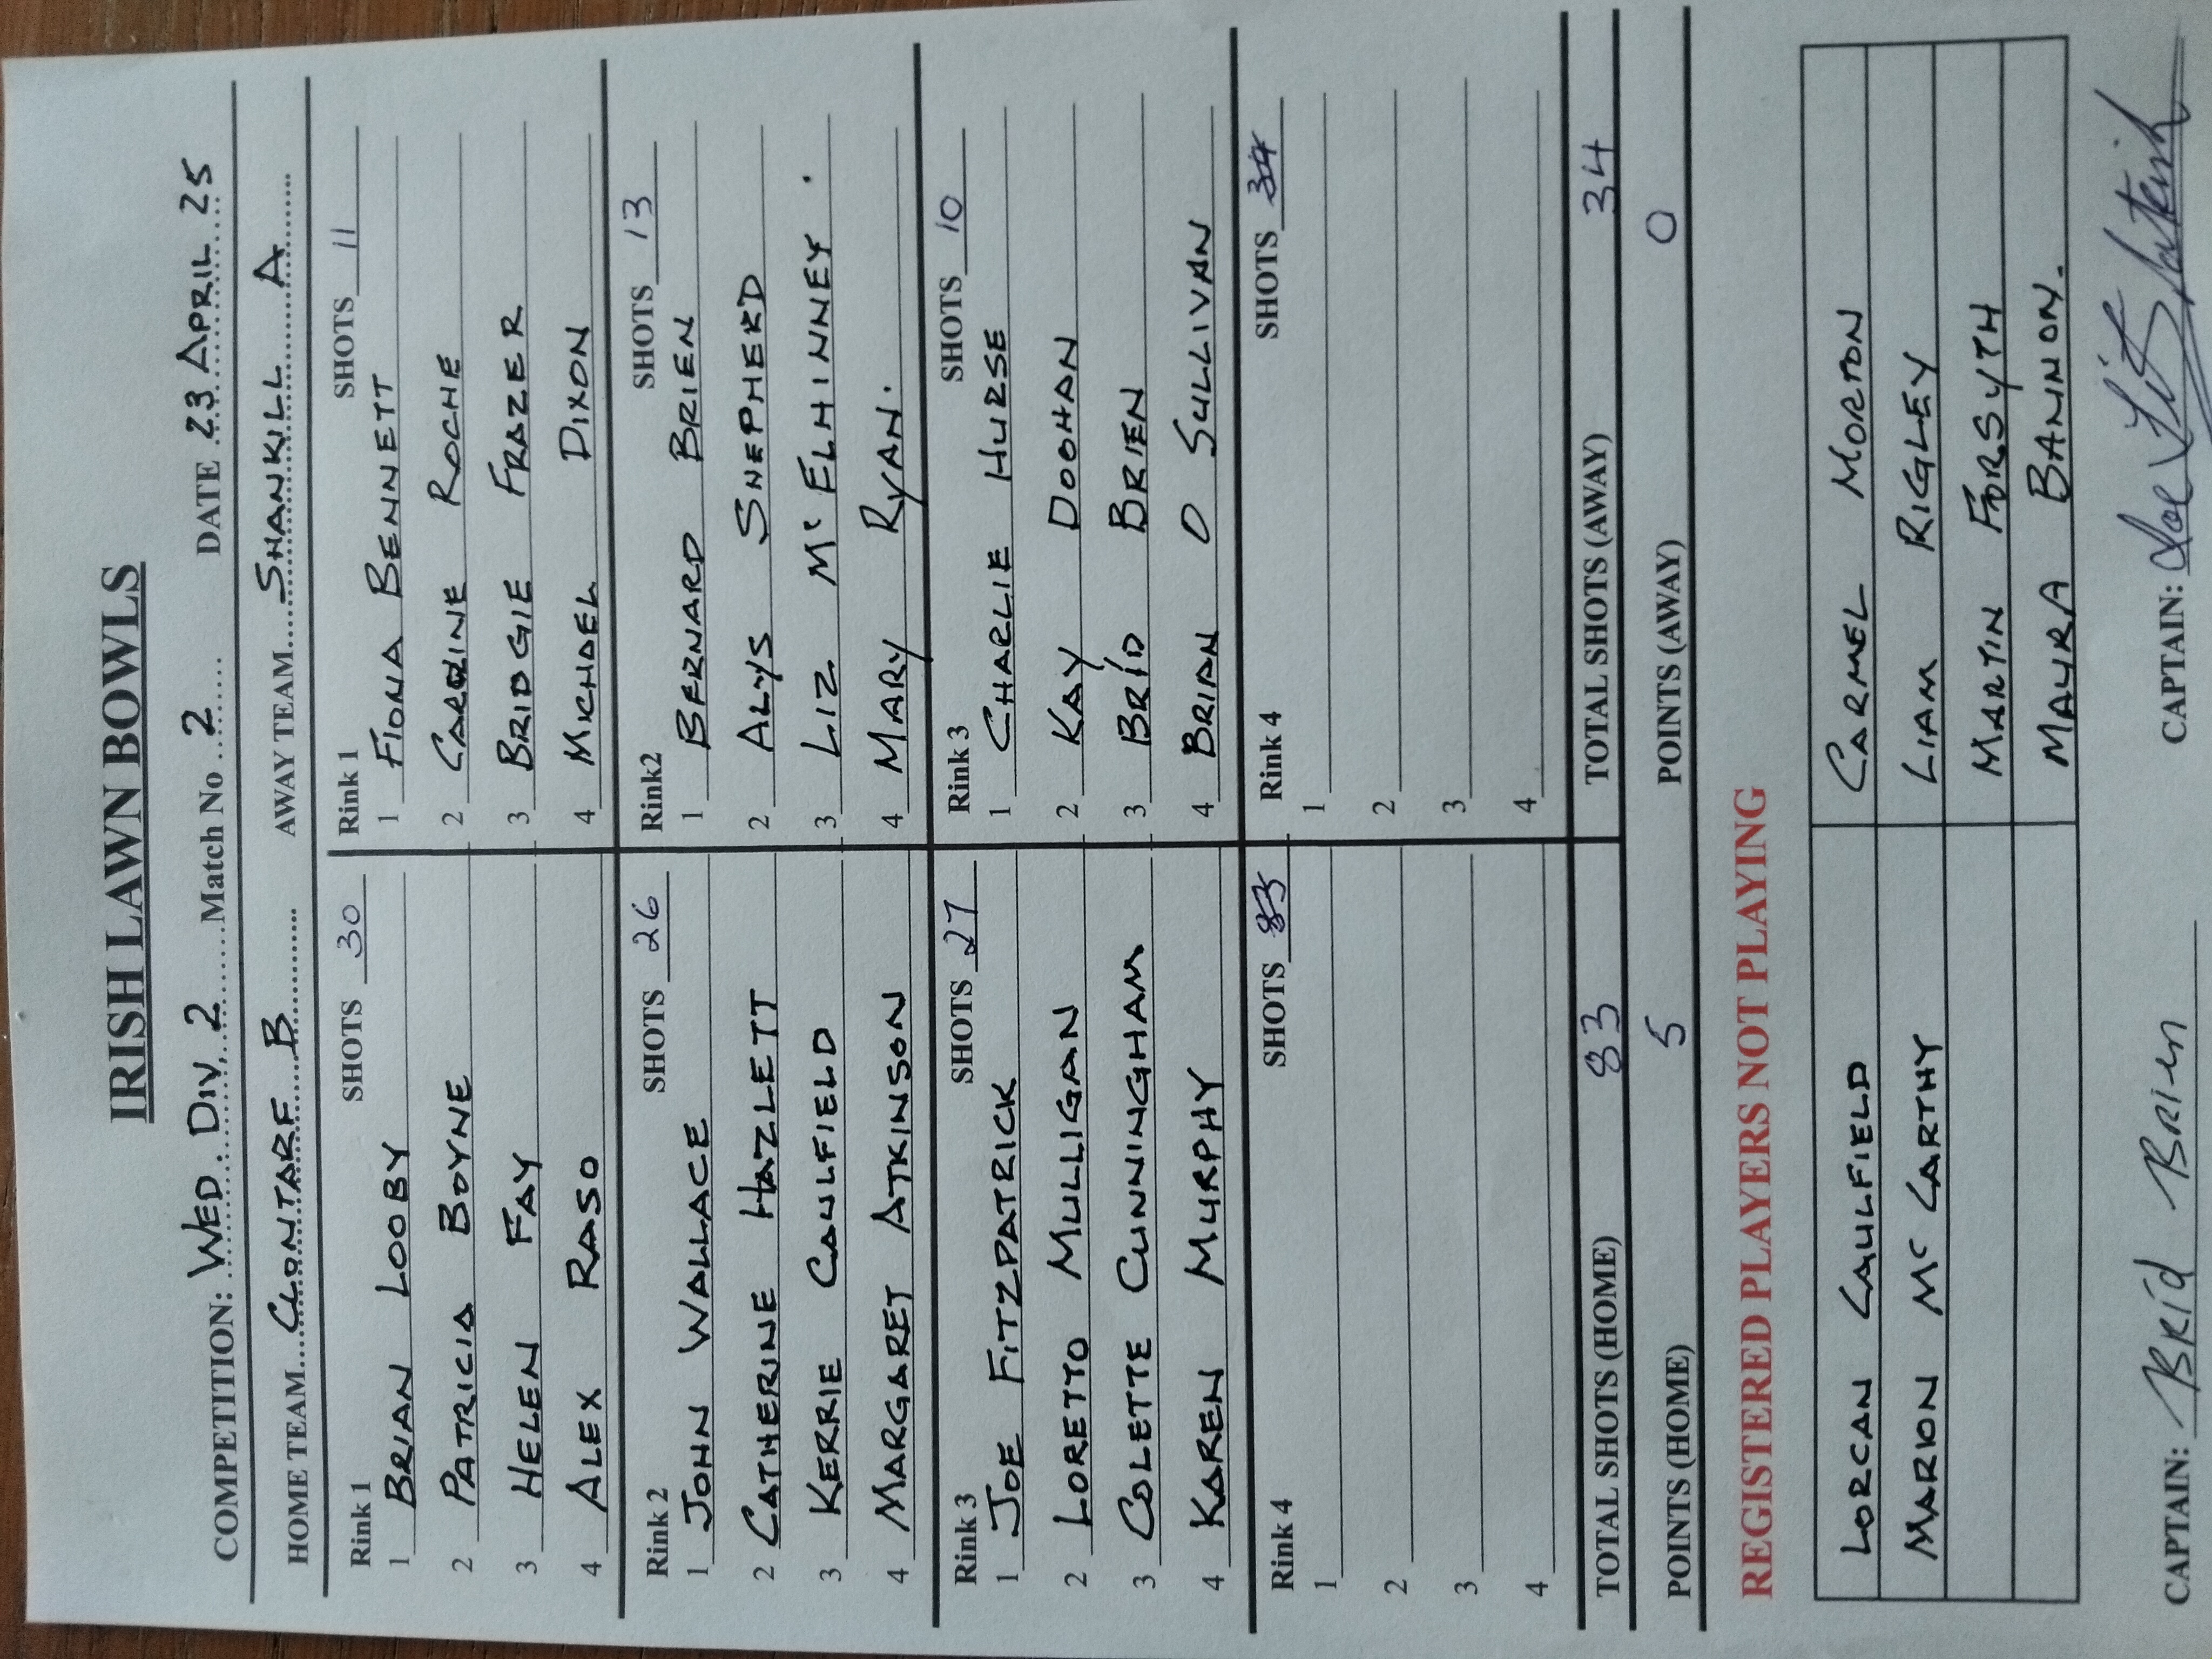 IRISH LAWN BOWLS
COMPETITION: WED DIV 2 Match No 2 DATE 23 APRIL 25
HOME TEAM CLONTARF B AWAY TEAM SHANKILL A
Rink 1 SHOTS 30 Rink 1 SHOTS 11
1 BRIAN LOOBY 1 FIONA BENNETT
2 PATRICIA BOYNE 2 CAROLINE ROCHE
3 HELEN FAY 3 BRIDGIE FRAZER
4 ALEX RASO 4 MICHAEL DIXON
Rink 2 SHOTS 26 Rink2 SHOTS 13
1 JOHN WALLACE 1 BERNARD BRIEN
2 CATHERINE HAZLETT 2 ALYS SHEPHERD
3 KERRIE CAULFIELD 3 LIZ Mc ELHINNEY.
4 MARGARET ATKINSON 4 MARY RYAN.
Rink 3 SHOTS 27 Rink 3 SHOTS 10
1 JOE FITZPATRICK 1 CHARLIE HURSE
2 LORETTO MULLIGAN 2 KAY DOOHAN
3 COLETTE CUNNINGHAM 3 BRÍD BRIEN
4 KAREN MURPHY 4 BRIAN O SULLIVAN
Rink 4 SHOTS 83 Rink 4 SHOTS 34
1 1
2 2
3 3
4 4
TOTAL SHOTS (HOME) 83 TOTAL SHOTS (AWAY) 34
POINTS (HOME) 5 POINTS (AWAY) 0
REGISTERED PLAYERS NOT PLAYING
LORCAN CAULFIELD CARMEL MORTON
MARION Mc CARTHY LIAM RIGLEY
MARTIN FORSYTH
MAURA BANNON.
CAPTAIN: Bríd Brien CAPTAIN: Joe Fitzpatrick